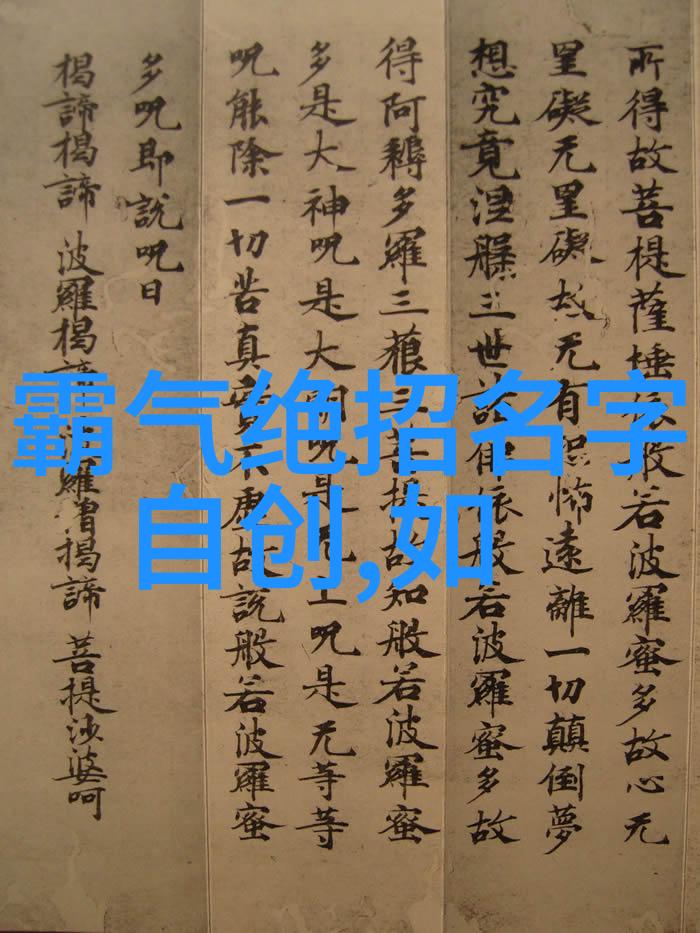 所得故菩提薩埵依般若波羅蜜多故心无
罣礙无罣礙故无有恐怖遠離一切顛倒夢
想究竟涅槃三世諸佛依般若波羅蜜多故
得阿耨多羅三藐三菩提故知般若波羅蜜
多是大神呪是大明呪是无上呪是无等等
呪能除一切苦真實不虛故說般若波羅蜜
多呪即說呪曰
揭諦揭諦 波羅揭諦 波羅僧揭諦 菩提沙婆呵
霸气绝招名字
自创,如